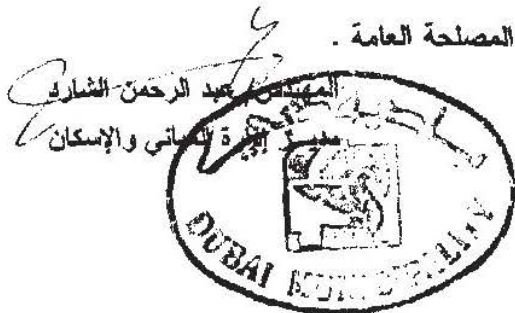 المصلحة العامة .
المهندس / عبد الرحمن الشارد
مديـر إدارة المباني والإسكان
DUBAI MUNICIPALITY